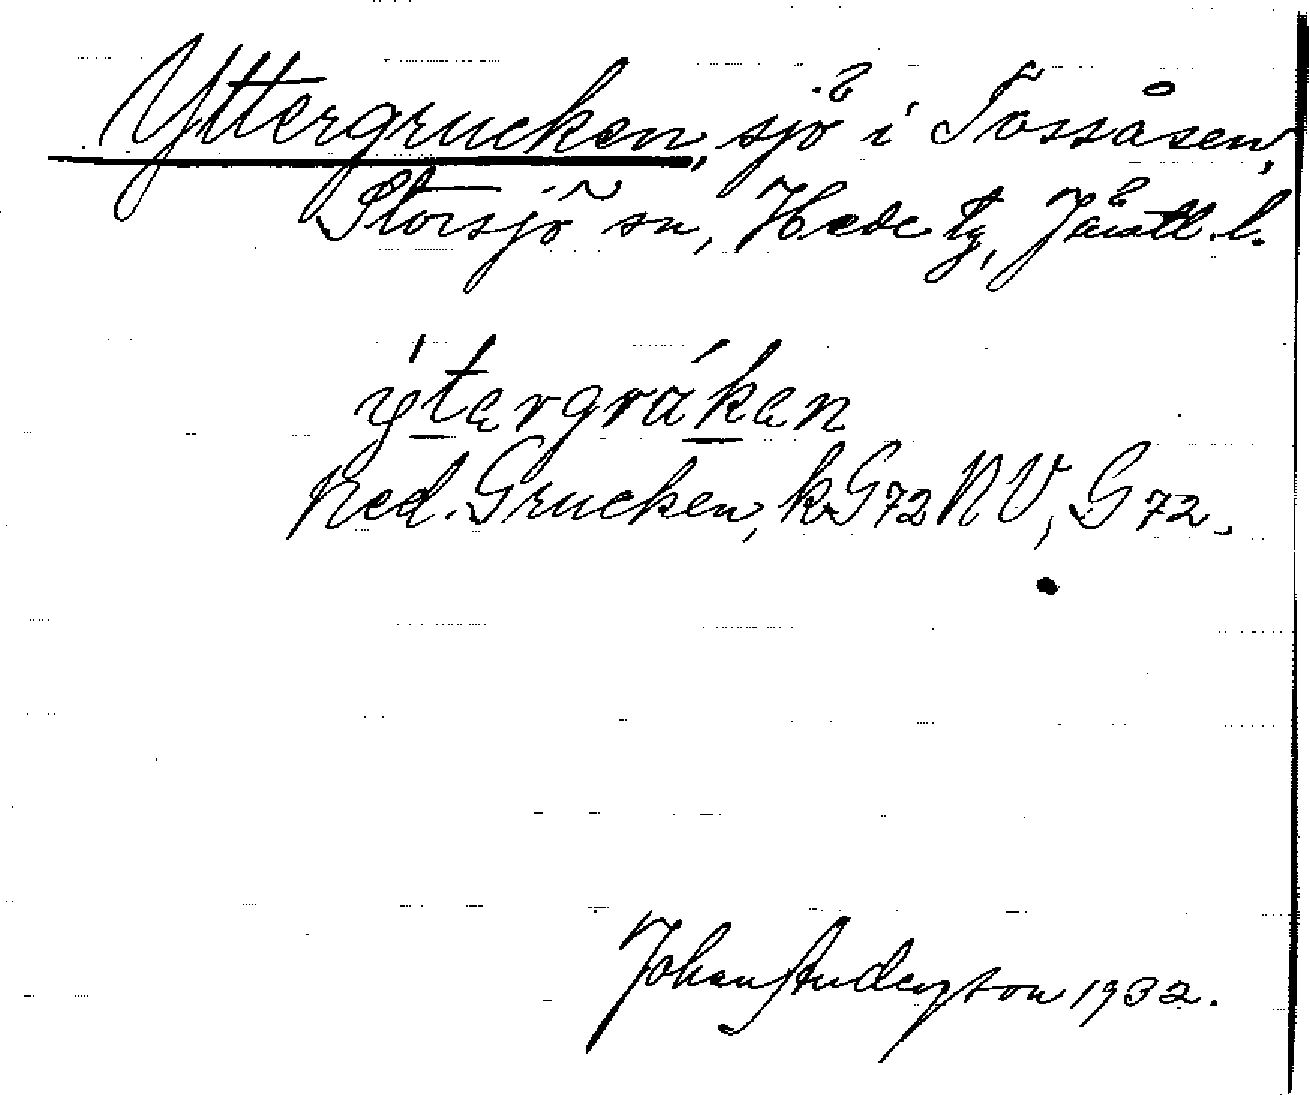 Yttergrucken, sjö i Tossåsen,
Storsjö sn, Hede tg, Jämtl. l.
ýtergráken
Ned. Grucken, kG72NV, G72.
Johan Anderson 1932.